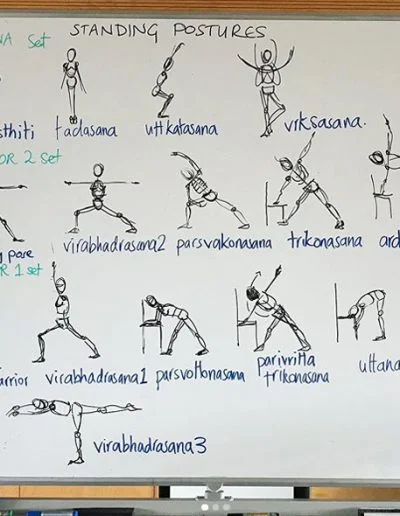 STANDING POSTURES
NA set
sthiti tadasana uttkatasana vrksasana.
OR 2 set
g pose virabhadrasana2 parsvakonasana trikonasana ard
R 1 set
arrior virabhadrasana1 parsvottonasana parivritta trikonasana uttana
virabhadrasana3